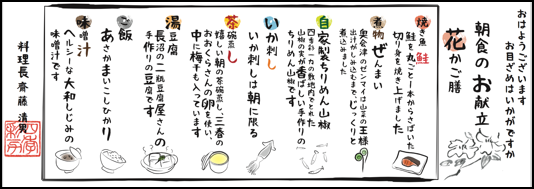 おはようございます
お目ざめはいかがですか
朝食のお献立
花かご膳
焼き魚 鮭
鮭を丸ごと一本からさばいた
切り身を焼き上げました
煮物 ぜんまい
奥会津のゼンマイは山菜の王様
出汁がしみ込むまでじっくりと
煮込みました
自家製ちりめん山椒
四季彩一力の敷地内でとれた
山椒の実が香ばしい手作りの
ちりめん山椒です
いか刺し
いか刺しは朝に限る
茶碗蒸し
嬉しい朝の茶碗蒸し、三春の
おおくらさんの卵を使い、
中に梅干も入っています
湯豆腐
長沼の二瓶豆腐屋さんの
手作りの豆腐です
ご飯
あさかまいこしひかり
味噌汁
ヘルシーな大和しじみの
味噌汁です
料理長 齋藤 清男